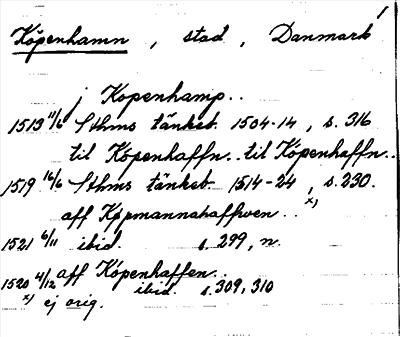 1
Köpenhamn, stad, Danmark
j Kopenhamp..
1513 11/6 Sthms tänkeb. 1504-14, s. 316
til Köpenhaffn.. til Köpenhaffn..
1519 16/6 Sthms tänkeb. 1514-24, s. 230.
aff Köpmannahaffwen.. x)
1521 6/11 ibid. s. 299, n.
aff Köpenhaffen..
1520 4/12 ibid. s. 309, 310
x) ej orig.